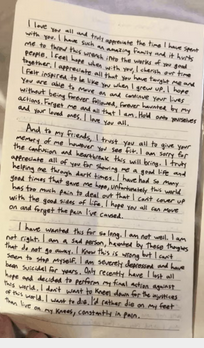 I love you all and truly appreciate the time I have spent
with you. I have such an amazing family and it hurts
me to throw this wrench into the works of you good
people. I feel hope when with you, I cherish our time
together. I appreciate all that you have taught me and
I felt inspired to be like you when I grew up. I hope
you are able to move on and continue your lives
without being forever followed, forever haunted by my
actions. Forget me and all that I am. Hold onto yourselves
and your loved ones. I love you all.
And to my friends, I trust you all to give your
memory of me however you see fit. I am sorry for
the confusion and heartbreak this will bring. I truly
appreciate all of you for showing me a good life and
helping me through dark times. I have had so many
good times that gave me hope, Unfortunately this world
has too much pain to deal out that I can't cover up
with the good sides of life. I hope you all can move
on and forget the pain I've caused.
I have wanted this for so long. I am not well. I am
not right. I am a sad person, haunted by these thoughts
that do not go away. I know this is wrong but I can't
seem to stop myself. I am severely depressed and have
been suicidal for years. Only recently have I lost all
hope and decided to perform my final action against
this world. I don't want to kneel down for the injustices
of this world. I want to die. I'd rather die on my feet
than live on my knees, constantly in pain.